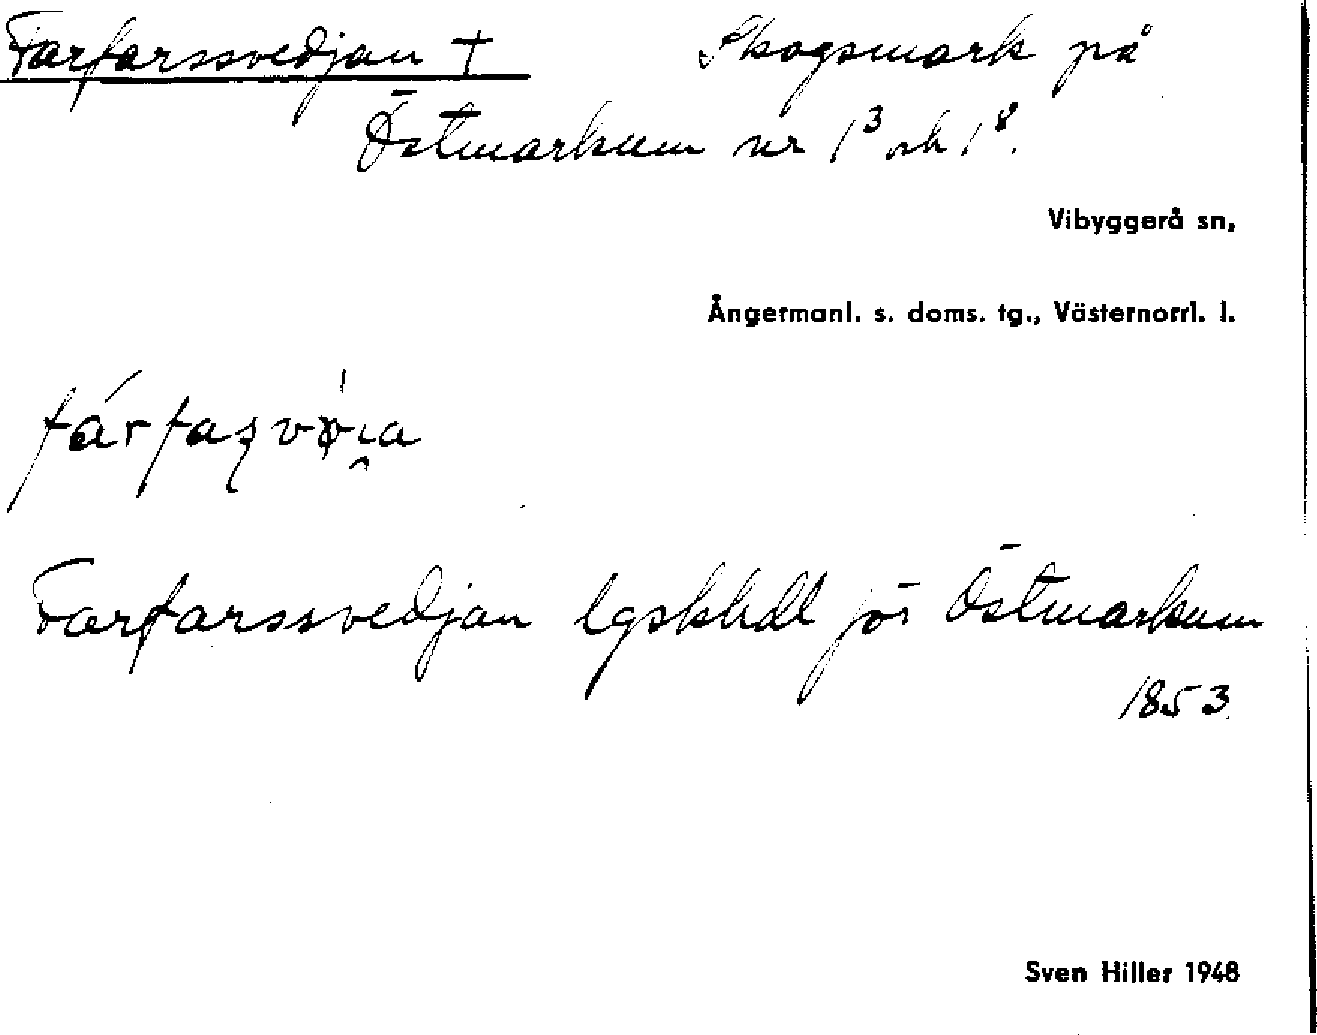 Farfarssvedjan † Skogsmark på
Östmarkum nr 1³ och 1⁸.
Vibyggerå sn,
Ångermanl. s. doms. tg., Västernorrl. l.
Farfarssvedjan för Östmarkum
1853
Sven Hiller 1948